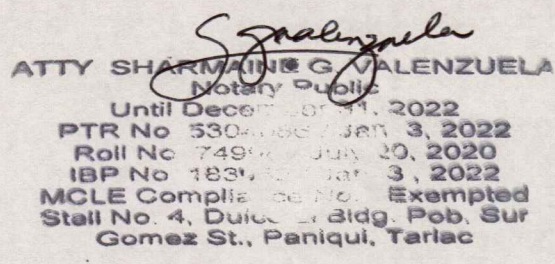 ATTY SHARMAINE G. VALENZUELA
Notary Public
Until 31, 2022
PTR No Jan 3, 2022
Roll No July 20, 2020
IBP No Jan 3, 2022
MCLE No. Exempted
Stall No. 4, Bldg. Pob. Sur
Gomez St., Paniqui, Tarlac